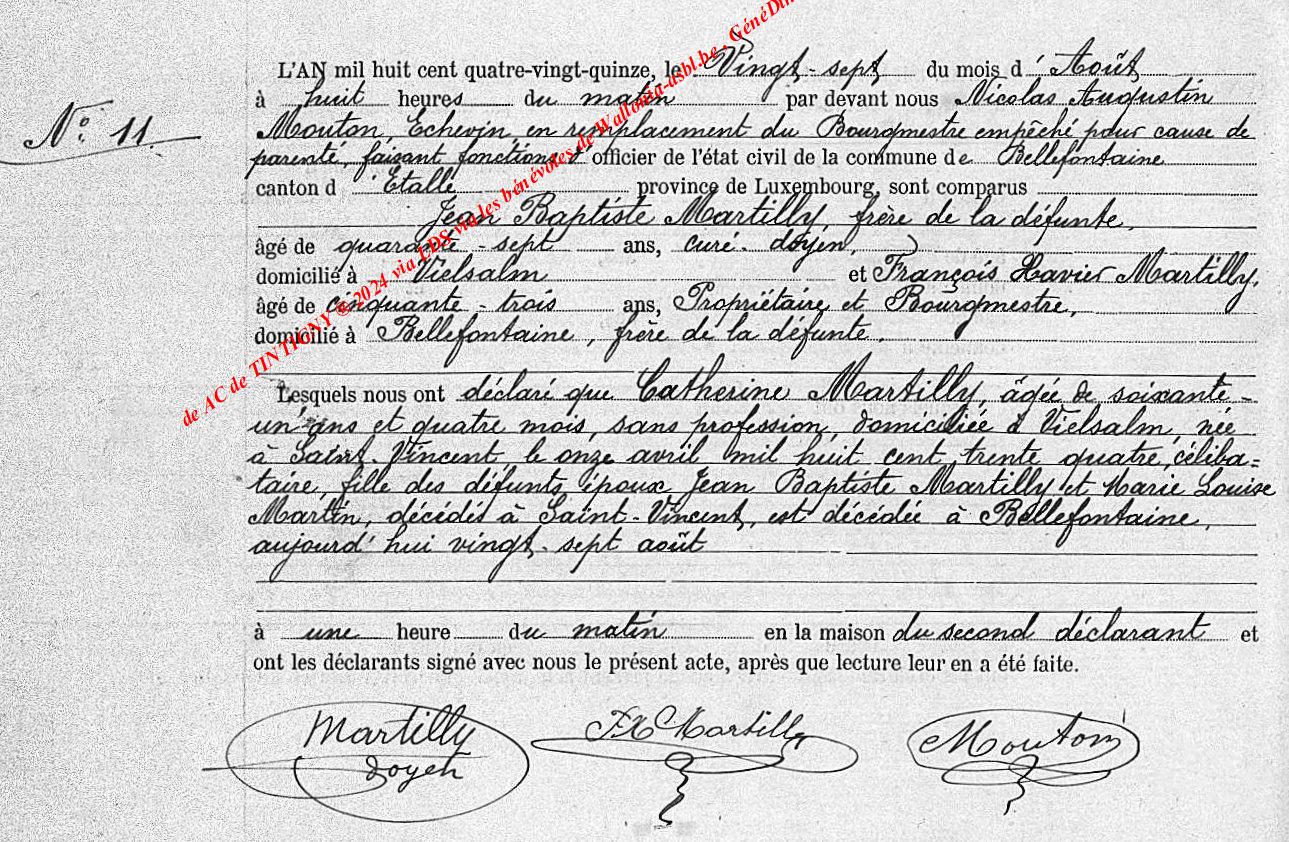 L'AN mil huit cent quatre-vingt-quinze, le Vingt-sept du mois d' Août
à huit heures du matin par devant nous Nicolas Augustin
N° 11.
Mouton, Echevin en remplacement du Bourgmestre empêché pour cause de
parenté, faisant fonctions d'officier de l'état civil de la commune de Bellefontaine
canton d 'Etalle province de Luxembourg, sont comparus
Jean Baptiste Martilly, frère de la défunte,
âgé de quarante-sept ans, curé-doyen,
domicilié à Vielsalm et François Xavier Martilly,
âgé de cinquante-trois ans, Propriétaire et Bourgmestre,
domicilié à Bellefontaine, frère de la défunte.
Lesquels nous ont déclaré que Catherine Martilly, âgée de soixante-
un ans et quatre mois, sans profession, domiciliée à Vielsalm, née
à Saint-Vincent le onze avril mil huit cent trente quatre, céliba=
taire, fille des défunts époux Jean Baptiste Martilly et Marie Louise
Martin, décédés à Saint-Vincent, est décédée à Bellefontaine,
aujourd'hui vingt-sept août
à une heure du matin en la maison du second déclarant et
ont les déclarants signé avec nous le présent acte, après que lecture leur en a été faite.
Martilly
doyen
FX Martilly
Mouton
de AC de TINTIGNY ®2024 via LDS via les bénévoles de Wallonia-asbl.be